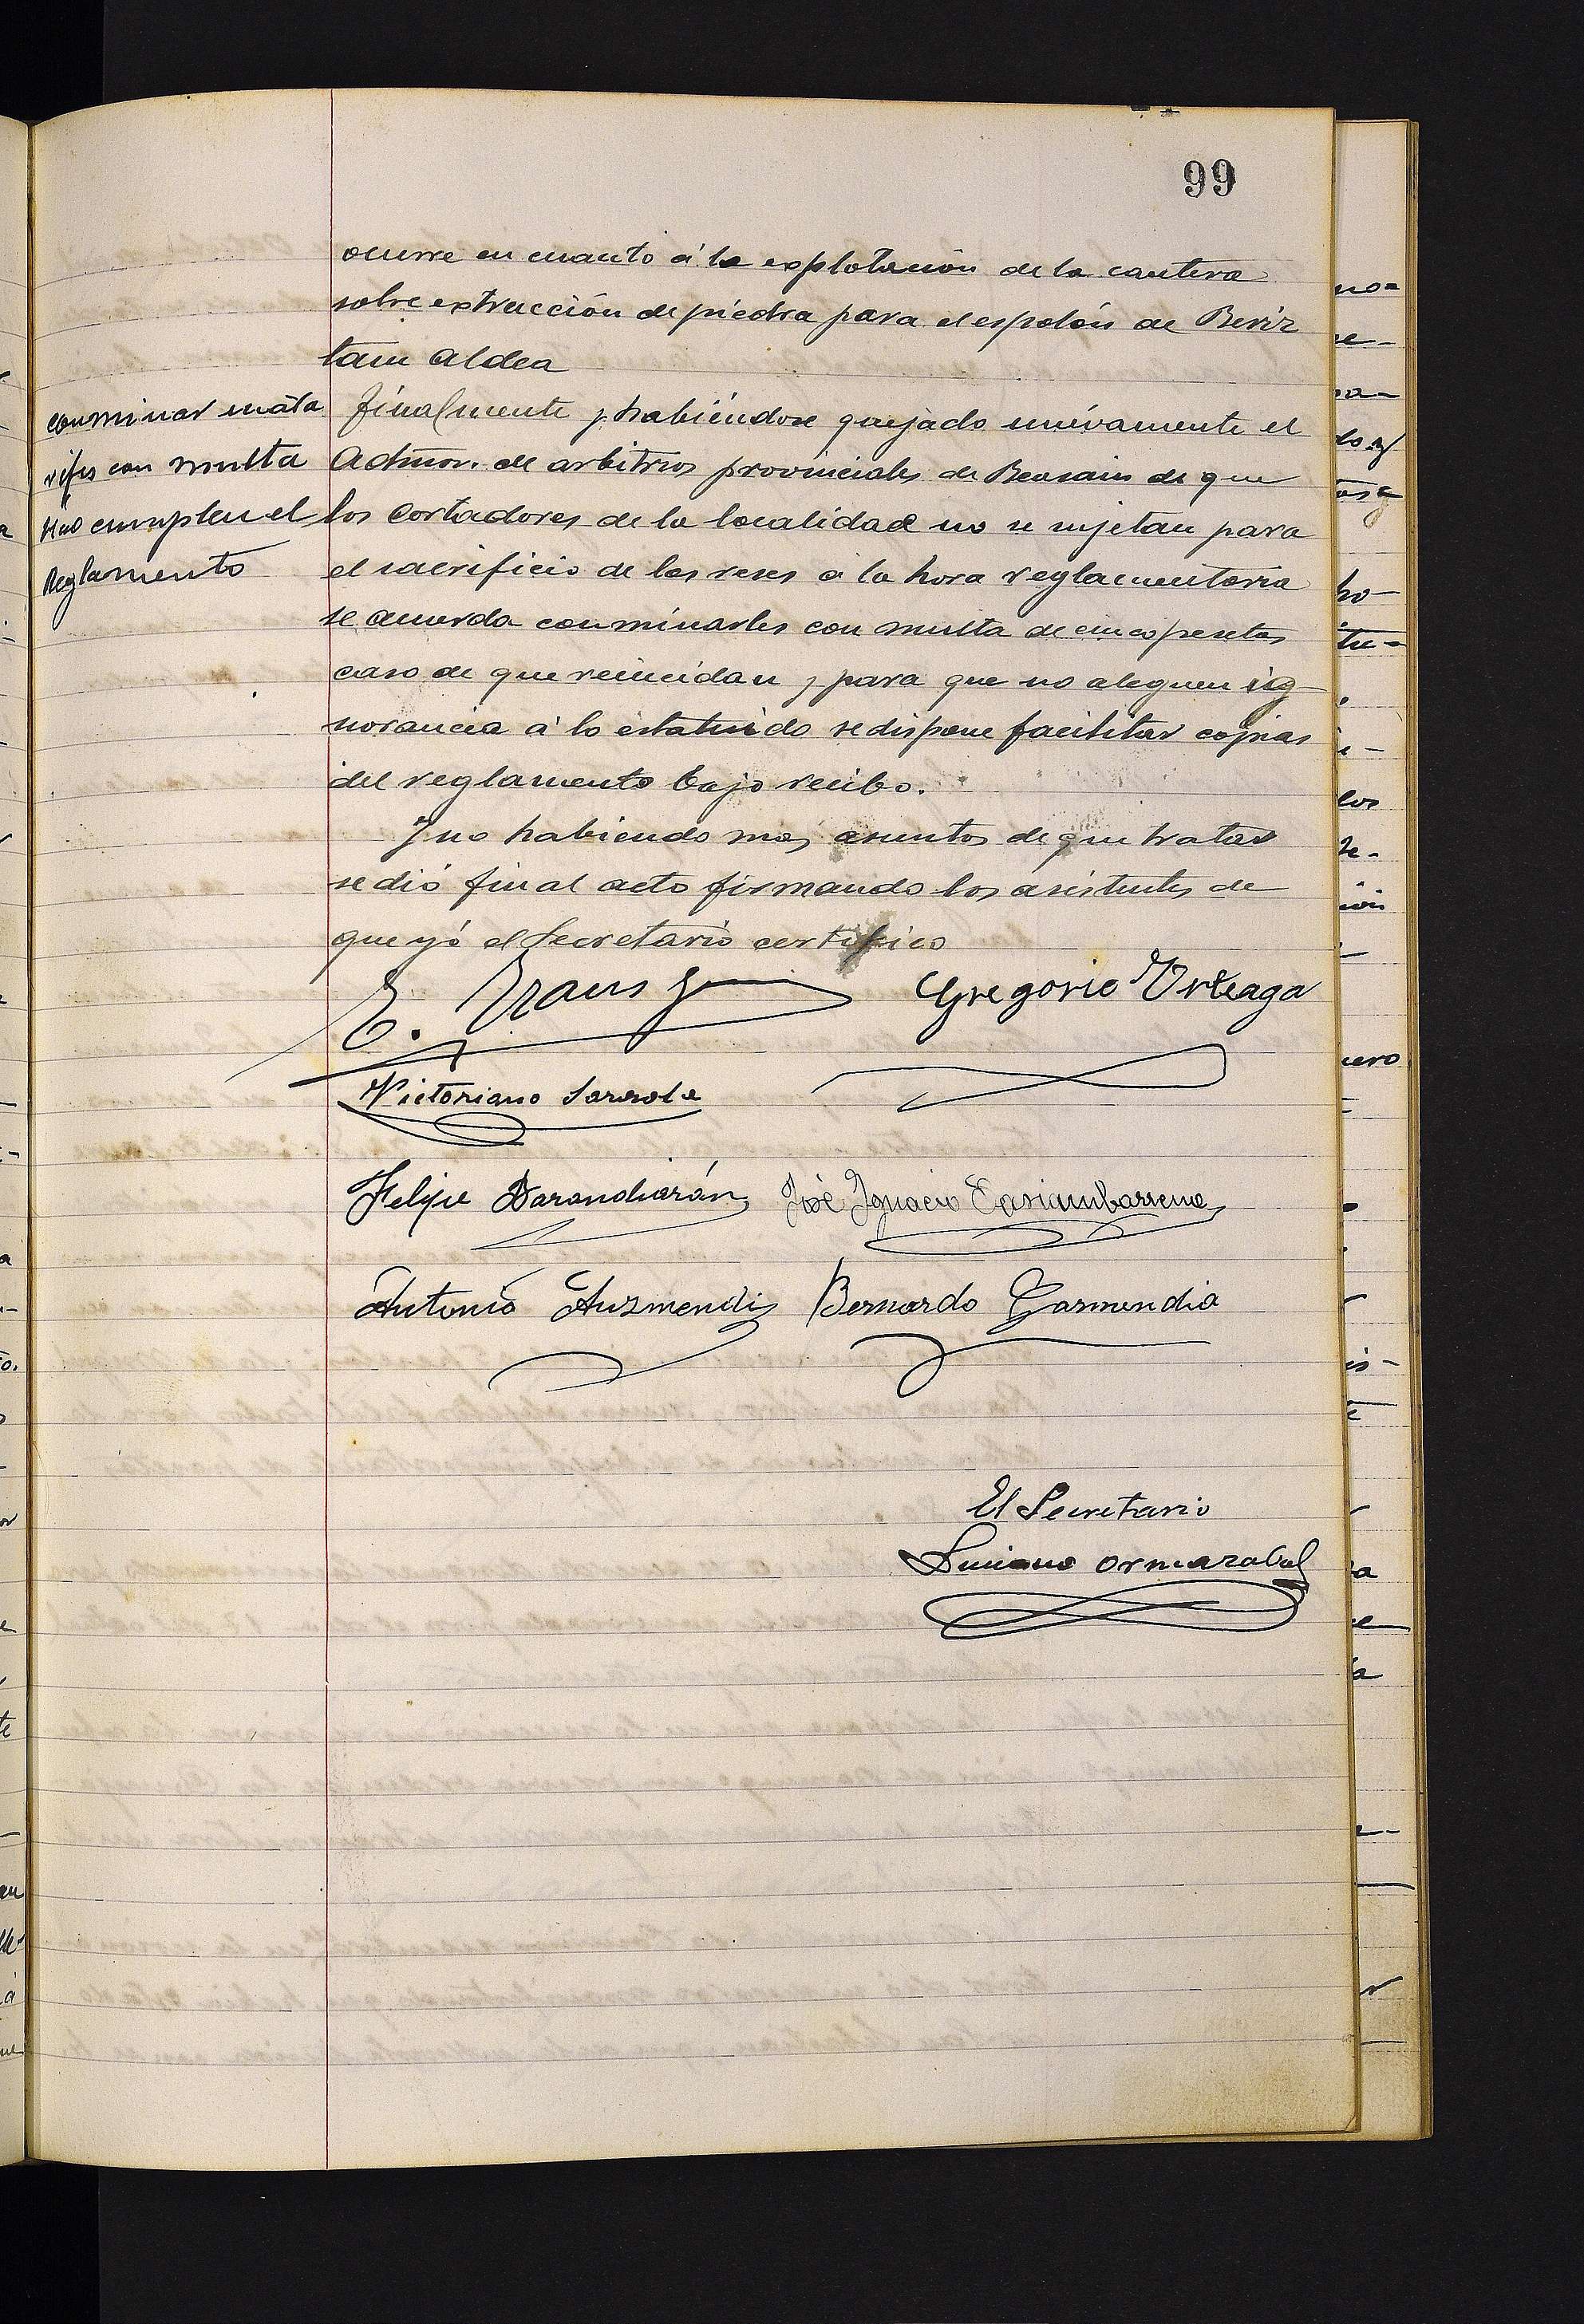 99
ocurre en cuanto á la explotación de la cantera
sobre extracción de piedra para el espolón de Beriz
tain aldea
conminar mata
rifes con multa
si no cumplen el
Reglamento
finalmente y habiéndose quejado nuevamente el
Admor. de arbitrios provinciales de Beasain de que
los Cortadores de la localidad no se sujetan para
el sacrificio de las reses á la hora reglamentaria
se acuerda conminarles con multa de cinco pesetas
caso de que reincidan y para que no aleguen ig-
norancia á lo estatuido se dispone facilitar copias
del reglamento bajo recibo.
Y no habiendo mas asuntos de que tratar
se dió fin al acto firmando los asistentes de
que yó el Secretario certifico
Gregorio Urteaga
Victoriano Sarasola
Felipe Barandiarán José Ignacio
Antonio Auzmendi Bernardo Garmendia
El Secretario
Luciano Ormazabal